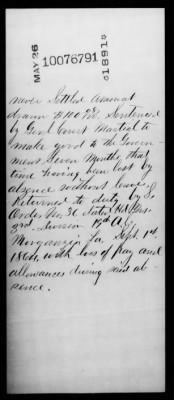 MAY 26
10076791
1891
never Settled Amount
drawn $110 00/100. Sentenced
by Genl Court Martial to
make good to the Govern-
ment seven Months, that
time having been lost by
absence without leave.
Returned to duty by S.
Order No. 36 dated Hd Qrs
3rd. Division 19th A.C.
Morganzia La. Sept. 1st.
1864, with loss of pay and
allowances during said ab-
sence.